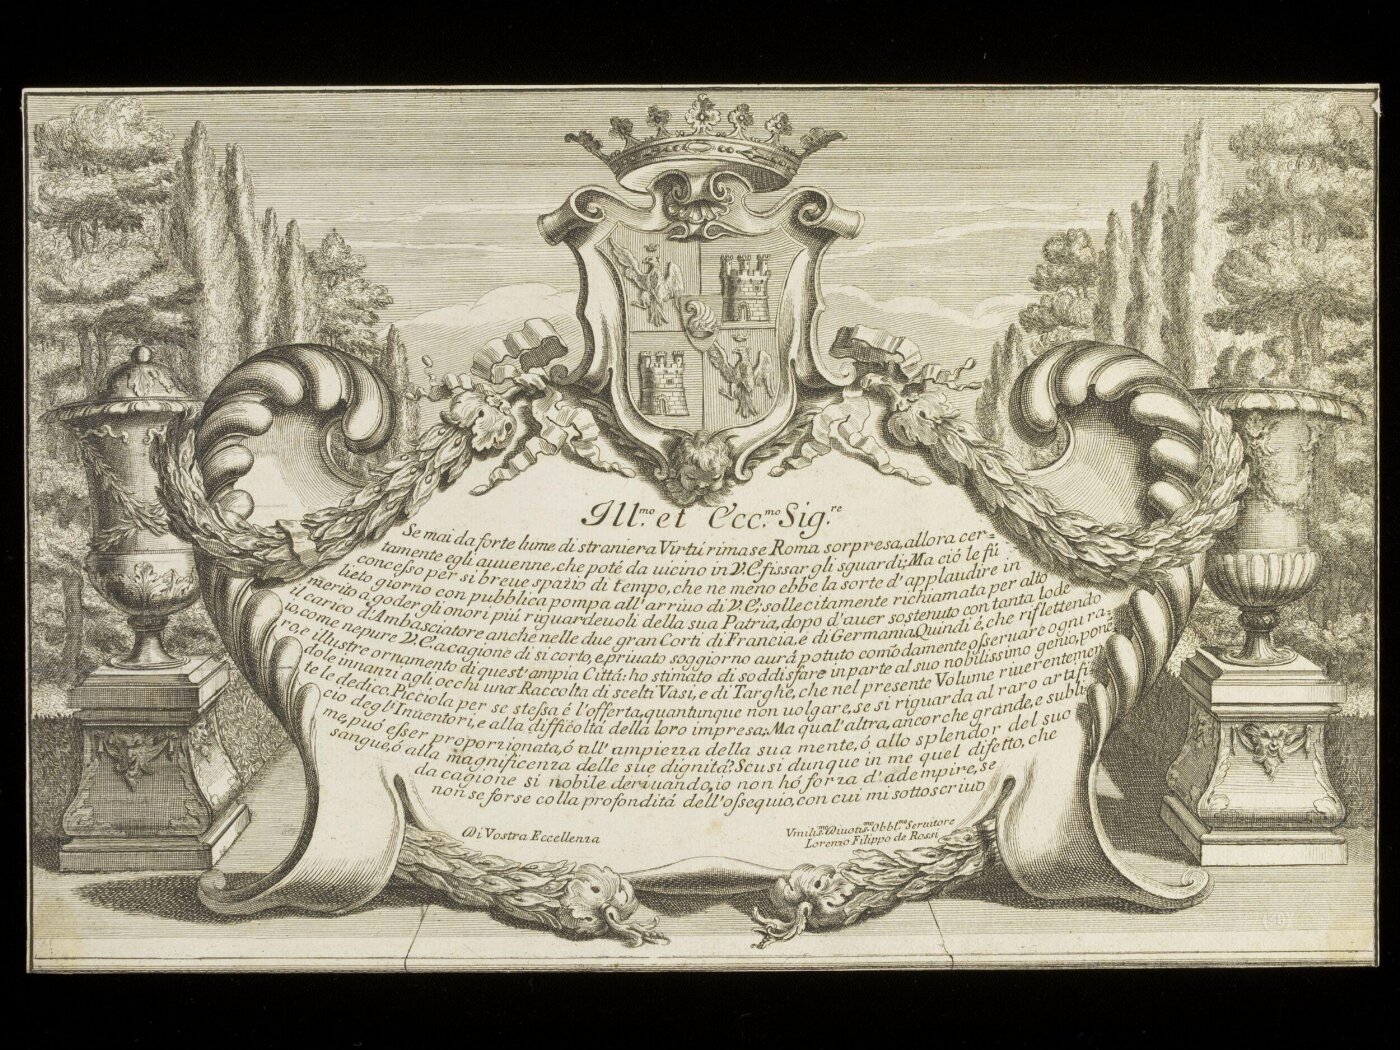 Ill.mo et Ecc.mo Sig.re
Se mai da forte lume di straniera Virtù rimase Roma sorpresa, allora cer=
tamente egli auuenne, che poté da uicino in V.E. fissar gli sguardi; Ma ció le fú
concesso per si breue spazio di tempo, che ne meno ebbe la sorte d'applaudire in
lieto giorno con pubblica pompa all'arriuo di V.E; sollecitamente richiamata per alto
merito a goder gli onori piú riguardeuoli della sua Patria, dopo d'auer sostenuto con tanta lode
il carico d'Ambasciatore anche nelle due gran Corti di Francia, e di Germania. Quindi é, che riflettendo
io, come nepure V.E. a cagione di si corto, e priuato soggiorno aurá potuto comodamente osseruare ogni ra=
ro, e illustre ornamento di quest'ampia Cittá: ho stimato di soddisfare in parte al suo nobilissimo genio, ponen
dole innanzi agli occhi una Raccolta di scelti Vasi, e di Targhe, che nel presente Volume riuerentemen
te le dedico. Picciola per se stessa é l'offerta, quantunque non uolgare, se si riguarda al raro artifi
cio degl'Inuentori, e alla difficoltá della loro impresa: Ma qual'altra, ancorche grande, e subli
me, puó esser proporzionata, ó all'ampiezza della sua mente, ó allo splendor del suo
sangue, ó alla magnificenza delle sue dignitá? Scusi dunque in me quel difetto, che
da cagione si nobile deriuando, io non hó forza d'adempire, se
non se forse colla profonditá dell'ossequio, con cui mi sottoscriuo
Di Vostra Eccellenza
Vmilis.mo Diuotis.mo Obbl.mo Seruitore
Lorenzo Filippo de Rossi